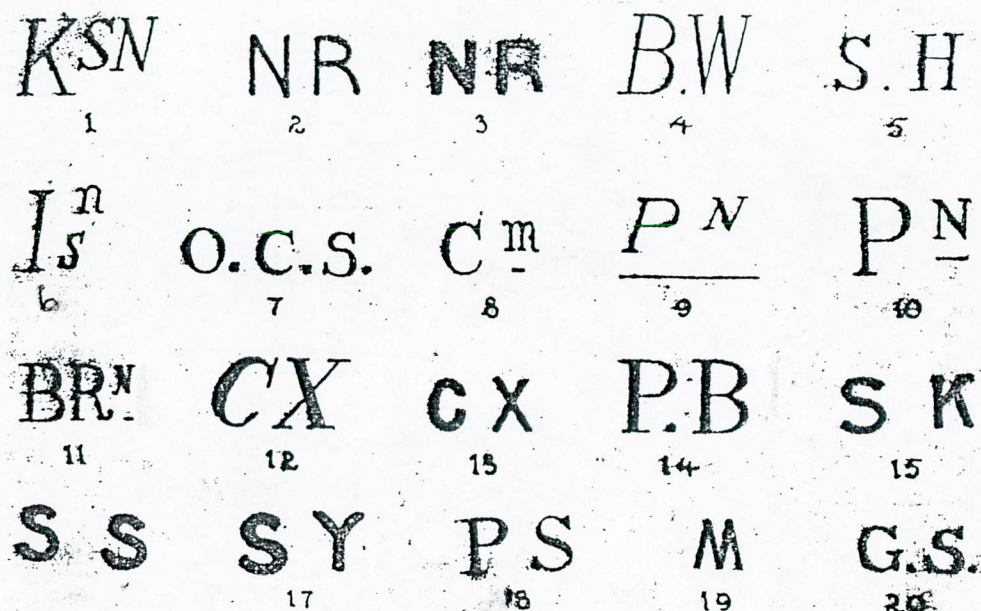 KSN NR NR B.W S.H
1 2 3 4 5
Isn O.C.S. Cm PN PN
6 7 8 9 10
BRN. CX CX P.B SK
11 12 13 14 15
SS SY PS M G.S.
17 18 19 20